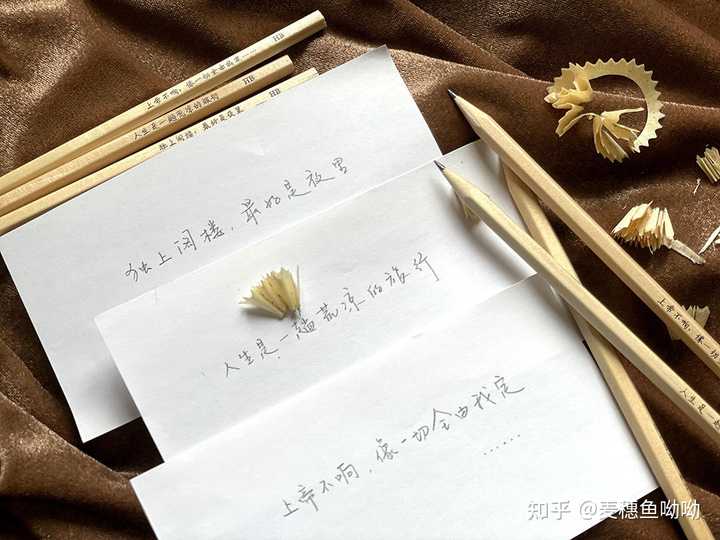 上帝不响，像一切全由我定…… HB
人生是一趟荒凉的旅行 HB
独上阁楼，最好是夜里 HB
独上阁楼，最好是夜里
人生是一趟荒凉的旅行
上帝不响，像一切全由我定
……
上帝不响，像一切
人生是一
知乎 @麦穗鱼呦呦